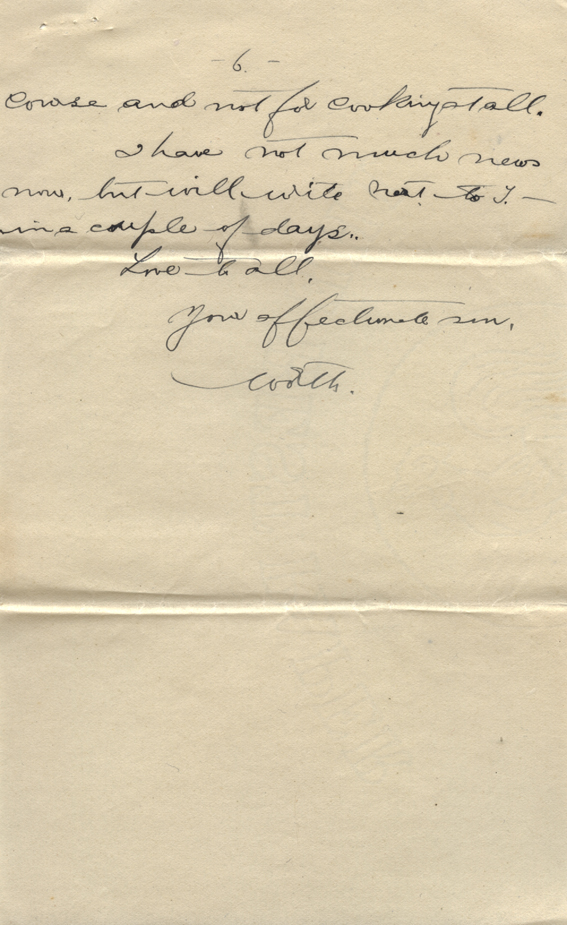 - 6. -
course and not for cooking at all.
I have not much news
now, but will write next to T. -
in a couple of days..
Love to all.
Your affectionate son,
Worth.